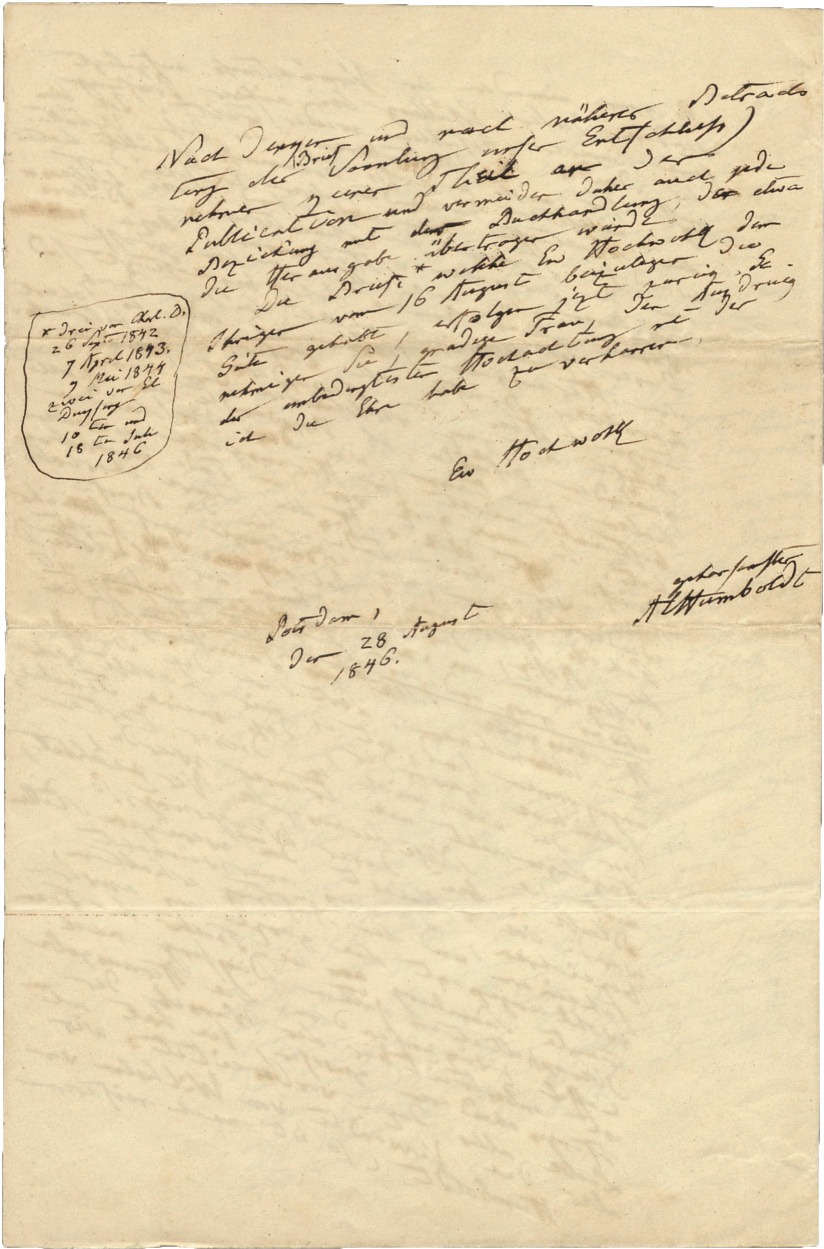 und nach näherer Betrach
tung der Brief Sammlung unser Entschluss)
nehmen keinen Theil an der
Publication und vermeiden daher auch jede
Beziehung mit der Buchhandlung, der etwa
die Herausgabe übertragen würde
Die Briefe * welche Ew Hochwohl den
Ihrigen vom 16 August beizulegen die
Güte gehabt, erfolgen jezt zurük. Ge
nehmigen Sie, gnädige Frau, den Ausdruck
der unbedingtesten Hochachtung mit der
ich die Ehre habe zu verharren,
Ew Hochwohl
gehorsamster
AlHumboldt
Potsdam,
den 28 August
1846.
* drei von
26 Sept 1842
7 April 1843.
9 Mai 1844
zwei von
10 ten und
18 ten Juli
1846